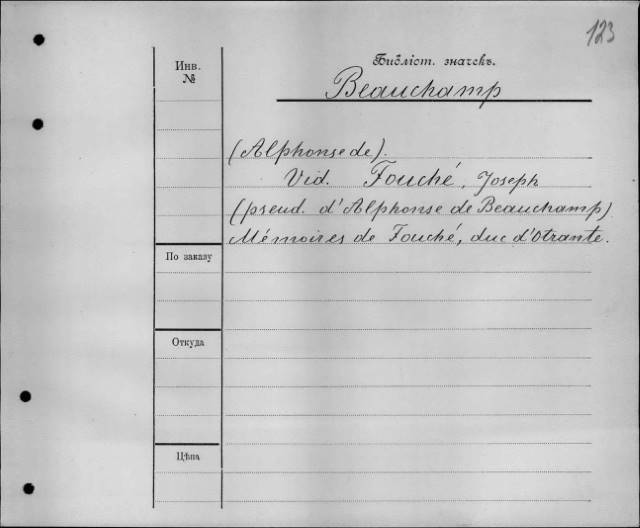 123
Инв.
№
Библіот. значекъ.
Beauchamp
(Alphonse de).
Vid. Fouché, Joseph
(pseud. d'Alphonse de Beauchamp)
Mémoires de Fouché, duc d'Otrante.
По заказу
Откуда
Цѣна